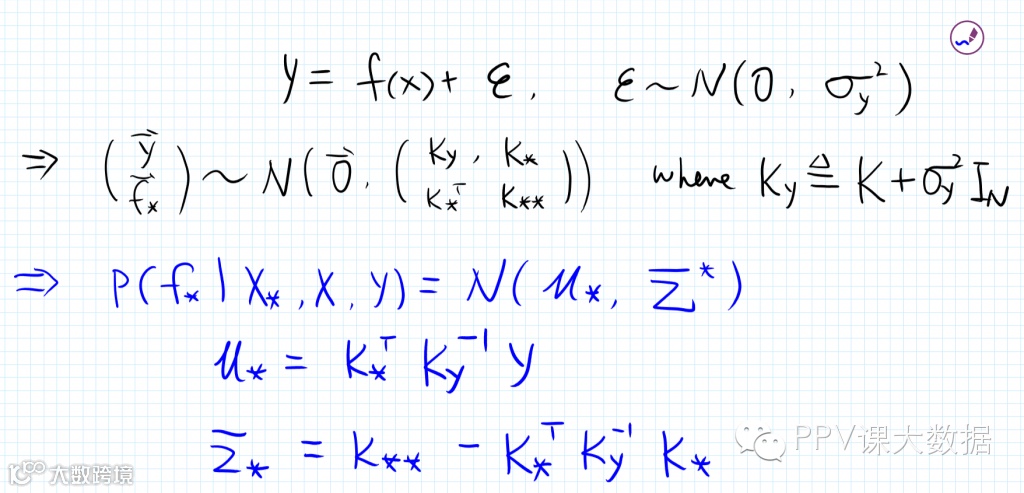 y = f(x) + ε, ε ~ N(0, σ_y^2)
⇒ (y⃗ f⃗_*) ~ N(0⃗, (K_y, K_* K_*^T K_**)) where K_y ≜ K + σ_y^2 I_N
⇒ P(f_* | X_*, X, y) = N(μ_*, Σ^*)
μ_* = K_*^T K_y^{-1} y
Σ_* = K_** - K_*^T K_y^{-1} K_*
PPV课大数据
大数跨境